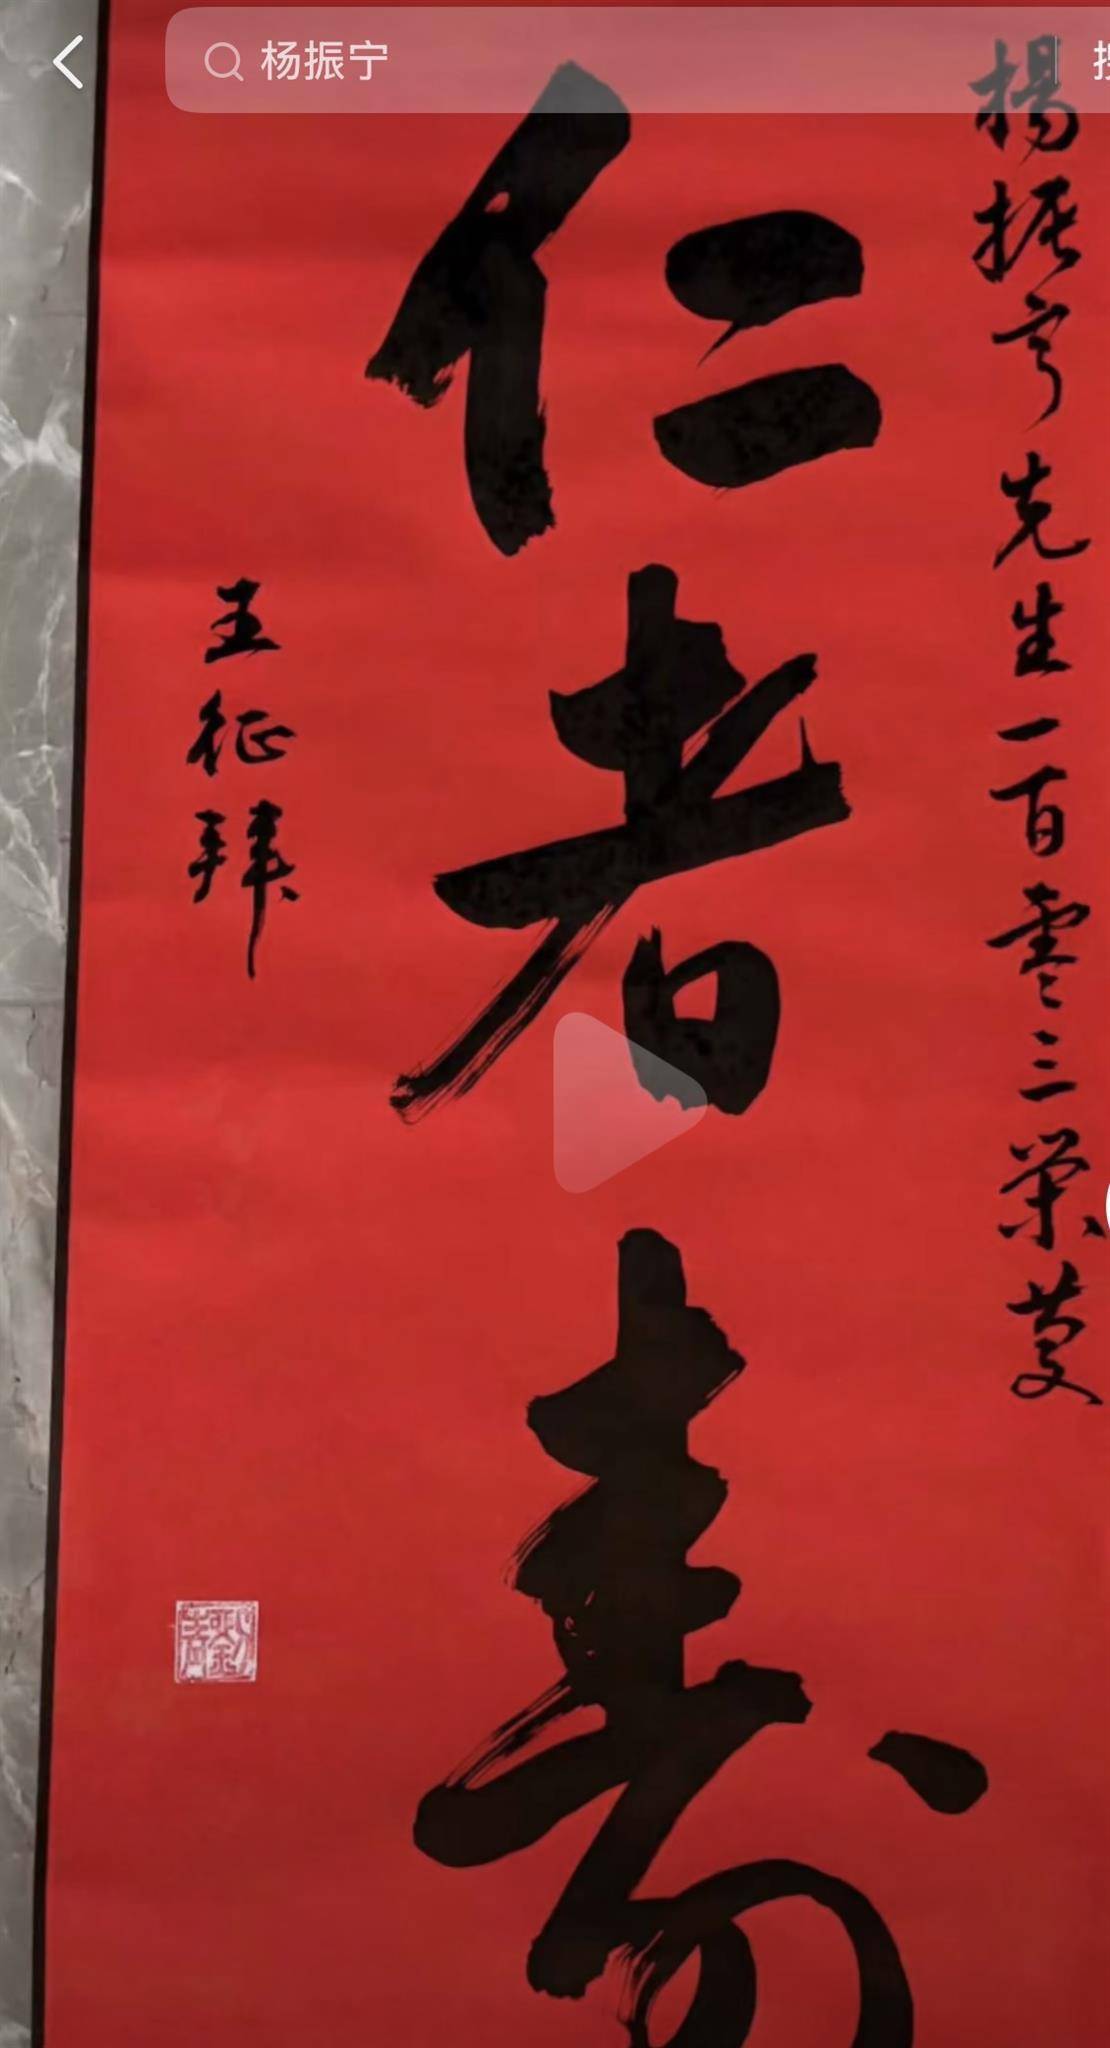 杨振宁
楊振宁先生一百零三荣
仁者寿
王征拜